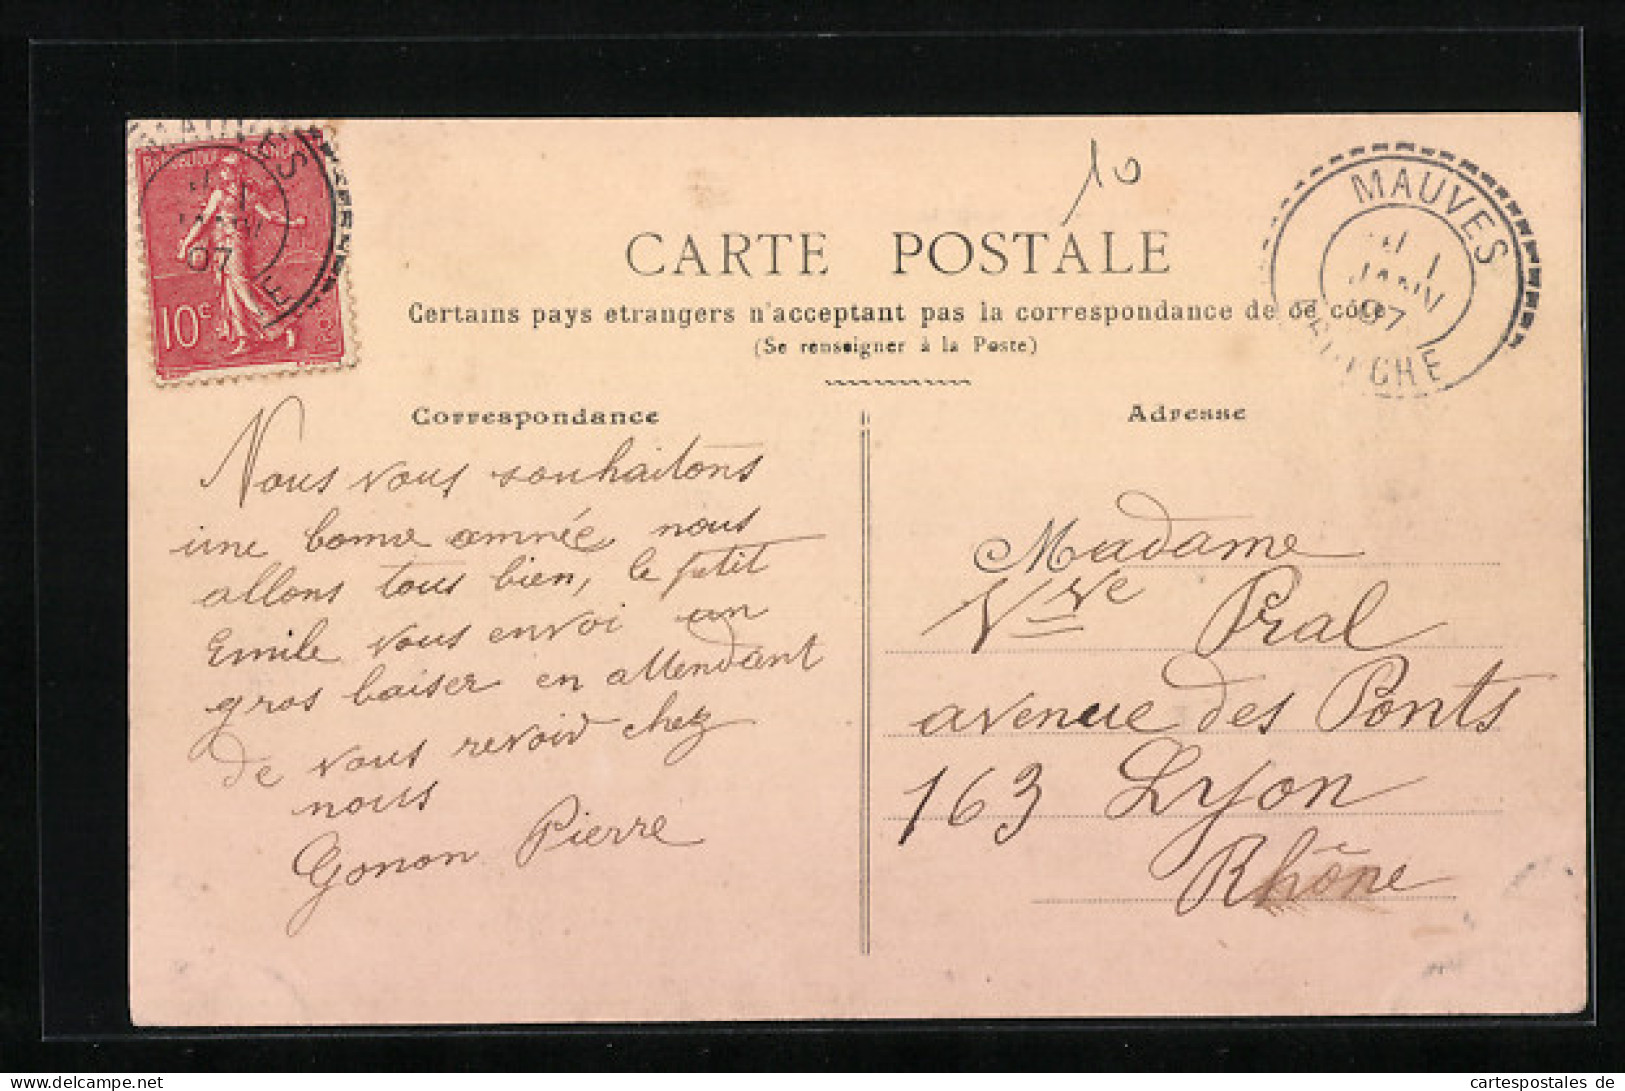 10
CARTE POSTALE
Certains pays etrangers n'acceptant pas la correspondance de ce côté
(Se renseigner à la Poste)
REPUBLIQUE FRANÇAISE
10c
MAUVES
1
JANV
07
ARDECHE
Correspondance
Nous vous souhaitons
une bonne année nous
allons tous bien, le petit
Emile vous envoi un
gros baiser en attendant
de vous revoir chez
nous
Gonon Pierre
Adresse
Madame
Vve Pral
avenue des Ponts
163 Lyon
Rhône
cartespostales de